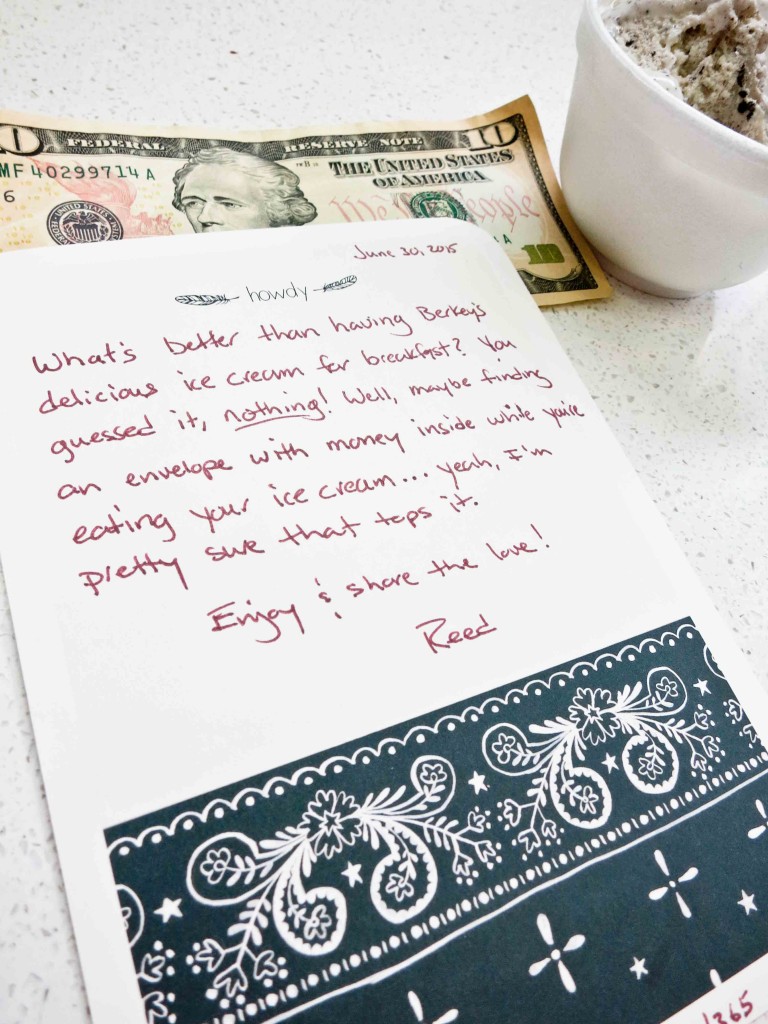 10
FEDERAL RESERVE NOTE
10
MF 40299714 A
THE UNITED STATES
OF AMERICA
6
We
People
A
10
June 30, 2015
howdy
What's better than having Berkey's
delicious ice cream for breakfast? You
guessed it, nothing! Well, maybe finding
an envelope with money inside while you're
eating your ice cream... yeah, I'm
pretty sure that tops it.
Enjoy & share the love!
Reed
/365